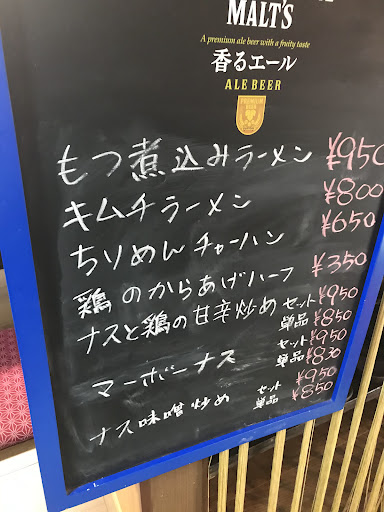 MALT'S
A premium ale beer with a fruity taste
香るエール
ALE BEER
もつ煮込みラーメン ¥950
キムチラーメン ¥800
ちりめんチャーハン ¥650
鶏のからあげハーフ ¥350
ナスと鶏の甘辛炒め セット ¥950
単品 ¥850
マーボーナス セット ¥950
単品 ¥830
ナス味噌炒め セット ¥950
単品 ¥850